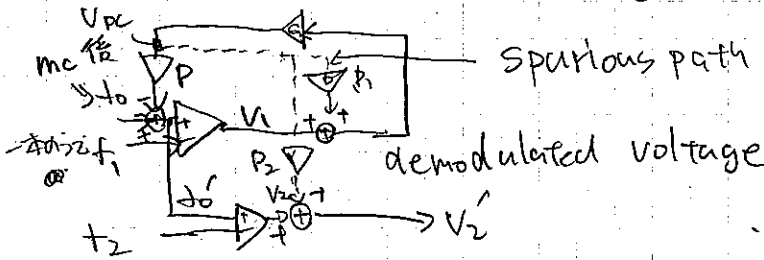 VPC
mc倍
P
P1
spurious path
f0
V1
f1
P2
demodulated voltage
f0'
V2
f2
V2'